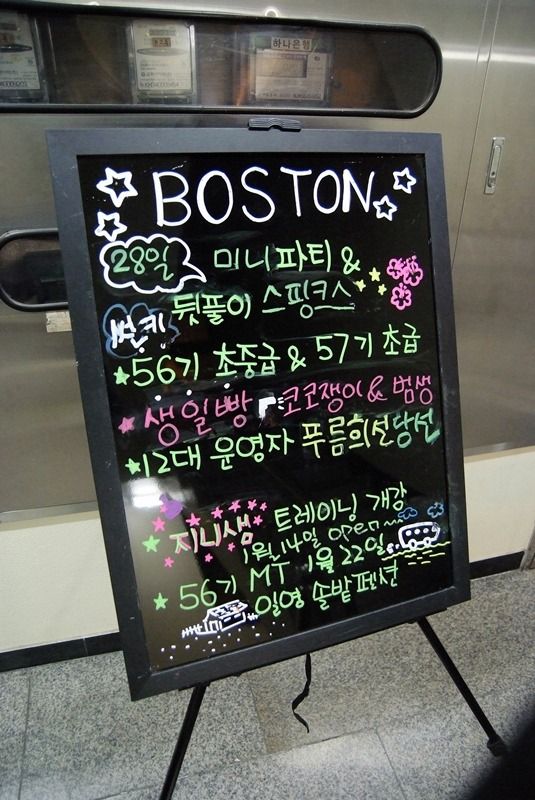 하나은행
BOSTON
28일 미니파티 &
번개 뒷풀이 스핑크스
56기 초중급 & 57기 초급
생일빵 코코쟁이 & 범생
12대 운영자 푸름희선 당선
지니샘 트레이닝 개강
1월 14일 open
56기 MT 1월 22일
일영 솔밭펜션